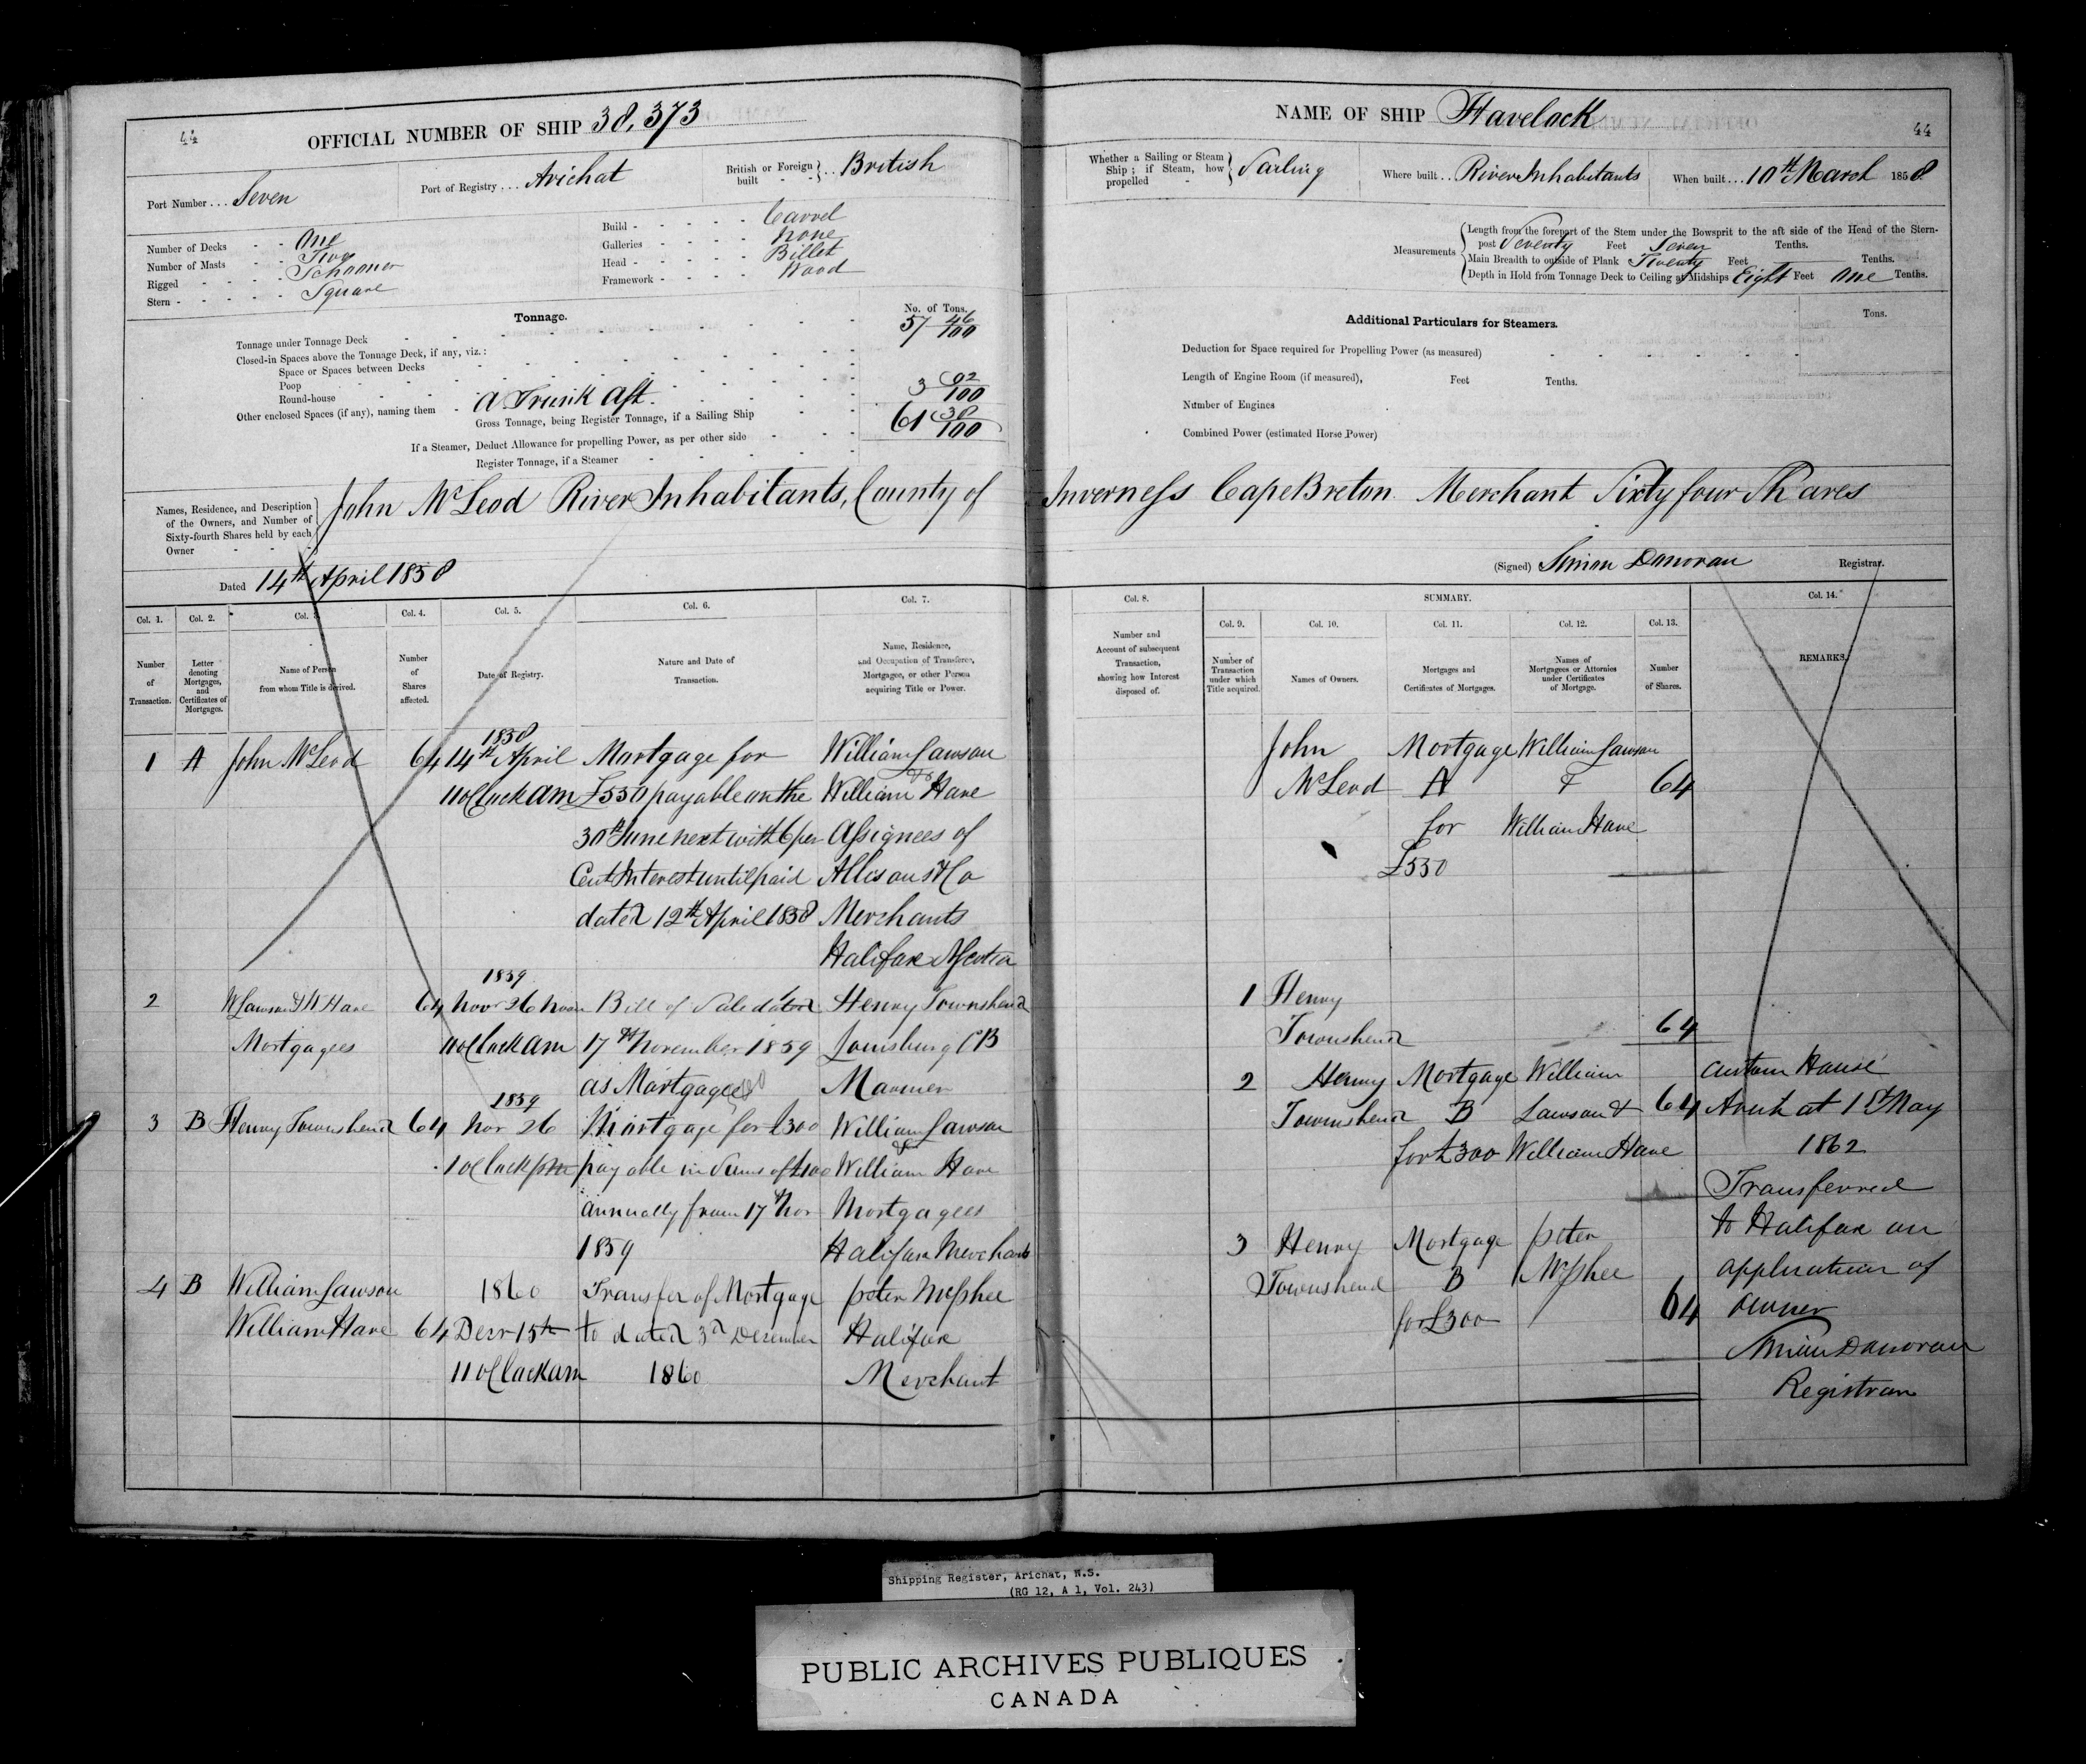 44
OFFICIAL NUMBER OF SHIP 38,373
Port Number . . . Seven
Port of Registry . . . Arichat
British or Foreign built - - } . . British
Number of Decks - - One
Number of Masts - - Two
Rigged - - - - - Schooner
Stern - - - - - - Square
Build - - - - - - Carvel
Galleries - - - - none
Head - - - - - - Billet
Framework - - - - Wood
Tonnage.
No. of Tons.
Tonnage under Tonnage Deck 57 46/100
Closed-in Spaces above the Tonnage Deck, if any, viz.:
Space or Spaces between Decks
Poop
Round-house
Other enclosed Spaces (if any), naming them - A Trunk Aft. 3 92/100
Gross Tonnage, being Register Tonnage, if a Sailing Ship 61 38/100
If a Steamer, Deduct Allowance for propelling Power, as per other side
Register Tonnage, if a Steamer
NAME OF SHIP Havelock
44
Whether a Sailing or Steam Ship; if Steam, how propelled - } Sailing
Where built . . River Inhabitants
When built . . . 10th March 1858.
Measurements
Length from the forepart of the Stem under the Bowsprit to the aft side of the Head of the Stern-
post Seventy Feet Seven Tenths.
Main Breadth to outside of Plank Twenty Feet Tenths.
Depth in Hold from Tonnage Deck to Ceiling at Midships Eight Feet One Tenths.
Additional Particulars for Steamers.
Tons.
Deduction for Space required for Propelling Power (as measured)
Length of Engine Room (if measured), Feet Tenths.
Number of Engines
Combined Power (estimated Horse Power)
Names, Residence, and Description
of the Owners, and Number of
Sixty-fourth Shares held by each
Owner
John McLeod River Inhabitants, County of Inverness Cape Breton Merchant Sixty four Shares
Dated 14th April 1858
(Signed) Simon Donovan Registrar.
Col. 1. Col. 2. Col. 3. Col. 4. Col. 5. Col. 6. Col. 7.
Number of Transaction.
Letter denoting Mortgages, and Certificates of Mortgages.
Name of Person from whom Title is derived.
Number of Shares affected.
Date of Registry.
Nature and Date of Transaction.
Name, Residence, and Occupation of Transferee, Mortgagee, or other Person acquiring Title or Power.
1 A John McLeod 64 1858 14th April Mortgage for William Lawson
11 oClock am £550 payable on the William Hare
30th June next with 6 per Assignees of
Cent Interest until paid Allison & Co
dated 12th April 1858 Merchants
Halifax NScotia
2 W Lawson & W Hare 64 1859 Nov 26 Bill of Sale dated Henry Townshend
Mortgagees 11 oClock am 17th November 1859 Louisburg CB
as Mortgagees Mariner
3 B Henry Townshend 64 1859 Nov 26 Mortgage for £300 William Lawson
1 oClock pm payable in Sums of £100 William Hare
annually from 17th Nov Mortgagees
1859 Halifax Merchants
4 B William Lawson 1860 Transfer of Mortgage Peter McPhee
William Hare 64 Decr 15th to dated 3d December Halifax
11 oClock am 1860 Merchant
Col. 8.
Number and Account of subsequent Transaction, showing how Interest disposed of.
SUMMARY.
Col. 9. Col. 10. Col. 11. Col. 12. Col. 13.
Number of Transaction under which Title acquired.
Names of Owners.
Mortgages and Certificates of Mortgages.
Names of Mortgagees or Attornies under Certificates of Mortgage.
Number of Shares.
Col. 14.
REMARKS.
John Mortgage William Lawson
McLeod A & 64
for William Hare
£550
1 Henry
Townshend 64
2 Henry Mortgage William
Townshend B Lawson & 64
for £300 William Hare
3 Henry Mortgage Peter
Townshend B McPhee
for £300 64
Custom House
Arichat 1st May
1862
Transferred
to Halifax on
application of
owner
Simon Donovan
Registrar
Shipping Register, Arichat, N.S.
(RG 12, A 1, Vol. 243)
PUBLIC ARCHIVES PUBLIQUES
CANADA